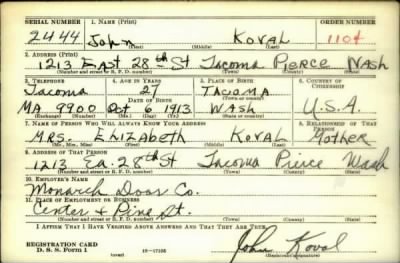 SERIAL NUMBER 1. NAME (Print) ORDER NUMBER
2444 John KOVAL 1104
(First) (Middle) (Last)
2. ADDRESS (Print)
1213 EAST 28th St Tacoma Pierce Wash
(Number and street or R. F. D. number) (Town) (County) (State)
3. TELEPHONE 4. AGE IN YEARS 5. PLACE OF BIRTH 6. COUNTRY OF CITIZENSHIP
Tacoma 27 TACOMA
(Exchange) DATE OF BIRTH (Town or county)
MA 9900 Oct 6 1913 WASH U.S.A.
(Number) (Mo.) (Day) (Yr.) (State or country)
7. NAME OF PERSON WHO WILL ALWAYS KNOW YOUR ADDRESS 8. RELATIONSHIP OF THAT PERSON
MRS. ELIZABETH KOVAL MOTHER
(Mr., Mrs., Miss) (First) (Middle) (Last)
9. ADDRESS OF THAT PERSON
1213 Ea. 28th St Tacoma Pierce Wash
(Number and street or R. F. D. number) (Town) (County) (State)
10. EMPLOYER'S NAME
Monarch Door Co.
11. PLACE OF EMPLOYMENT OR BUSINESS
Center & Pine St.
(Number and street or R. F. D. number) (Town) (County) (State)
I AFFIRM THAT I HAVE VERIFIED ABOVE ANSWERS AND THAT THEY ARE TRUE.
REGISTRATION CARD
D. S. S. Form 1 16—17105 John Koval